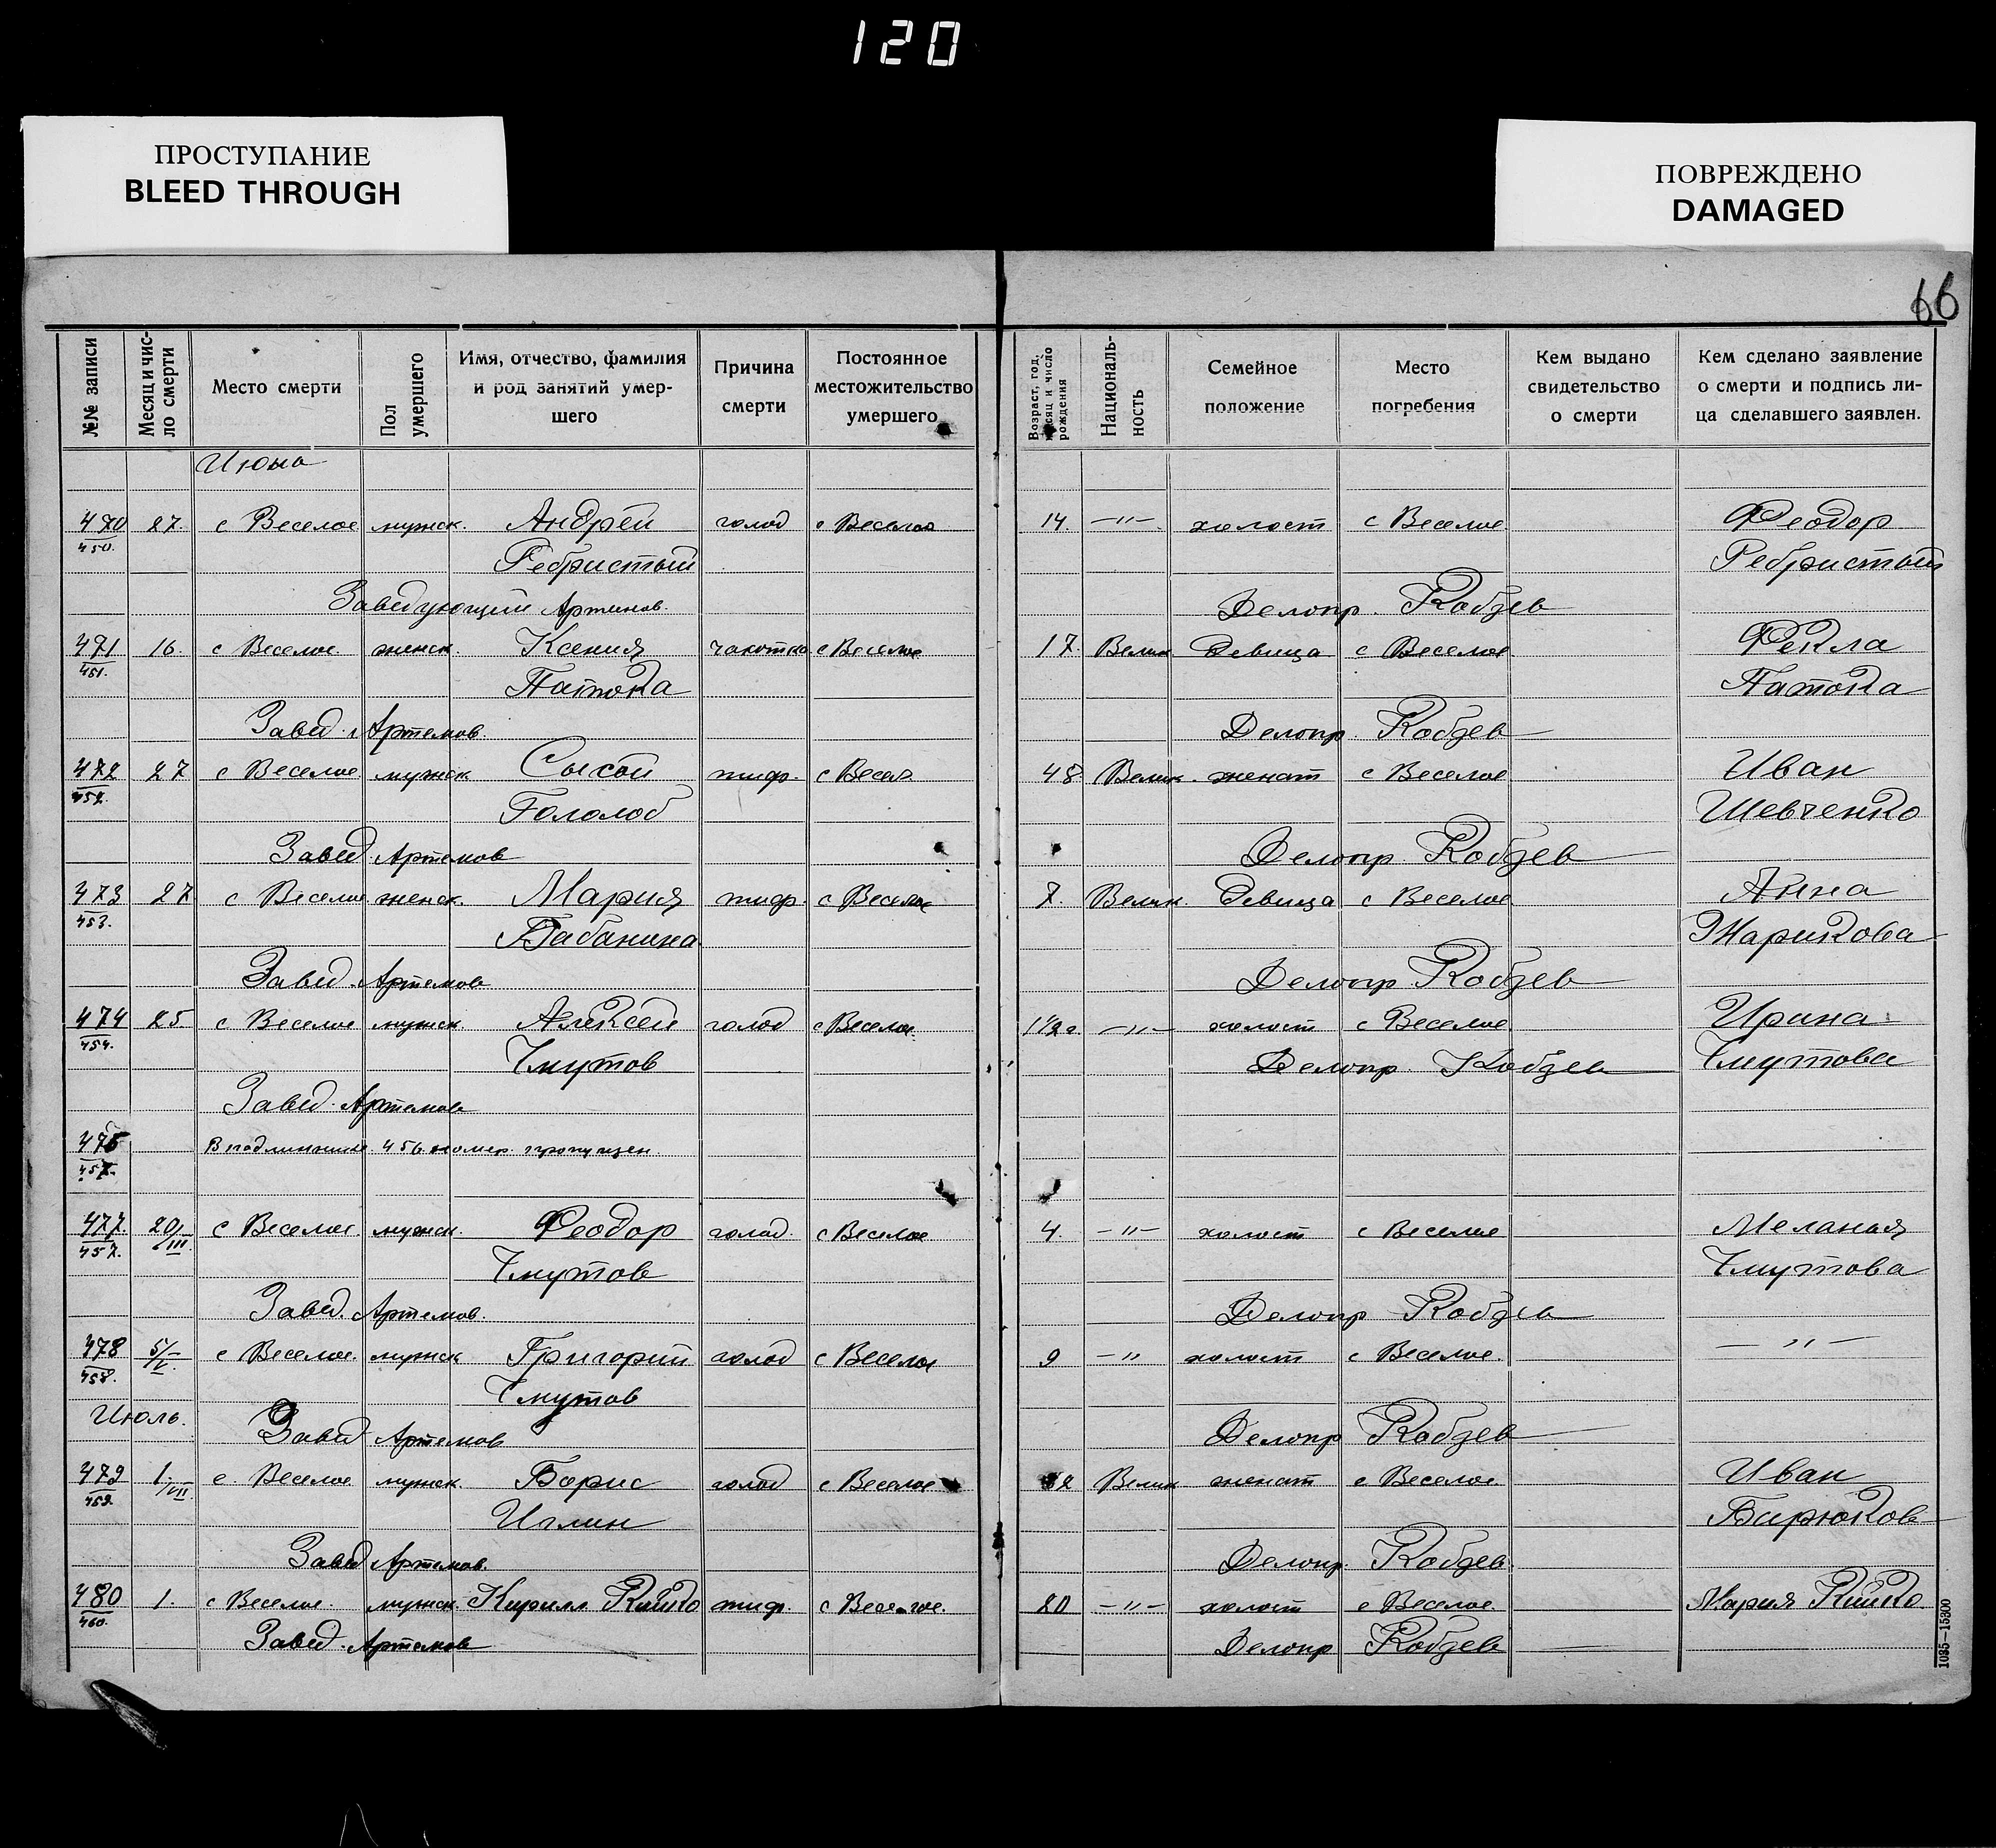 120
ПРОСТУПАНИЕ
BLEED THROUGH
ПОВРЕЖДЕНО
DAMAGED
66
№№ записи | Месяц и число смерти | Место смерти | Пол умершего | Имя, отчество, фамилия и род занятий умершего | Причина смерти | Постоянное местожительство умершего | Возраст, год, месяц и число рождения | Национальность | Семейное положение | Место погребения | Кем выдано свидетельство о смерти | Кем сделано заявление о смерти и подпись лица сделавшего заявлен.
Июнь
470 27. с Веселое мужск. Андрей голод с Веселое 14. —"— холост с Веселое Феодор
450. Ребристый Ребристый
Заведующий Артемов. Делопр. Кобзев
471 16. с Веселое. женск. Ксения чахотка с Веселое 17. Велик. девица с Веселое Фекла
451. Патока Патока
Завед. Артемов. Делопр. Кобзев
472 27 с Веселое мужск Сысой тиф. с Весел 48. Велик. женат с Веселое Иван
452. Гололоб Шевченко
Завед. Артемов Делопр. Кобзев
473 27 с Веселое женск. Мария тиф. с Веселое 7. Велик. девица с Веселое Анна
453. Бабанина Жарикова
Завед. Артемов Делопр. Кобзев
474 25. с Веселое мужск. Алексей голод с Веселое. 1 1/2 г. —"— холост с Веселое Ирина
454. Чмутов Делопр. Кобзев Чмутова
Завед. Артемов
475 В подлиннике 456 номер пропущен.
457.
477. 20/III с Веселое мужск. Феодор голод. с Веселое 4. —"— холост с Веселое Меланья
457. Чмутов Чмутова
Завед. Артемов. Делопр Кобзев
478 5/V с Веселое. мужск Григорий голод с Веселое 9 —"— холост с Веселое. —"—
458. Чмутов
Июль. Завед Артемов Делопр Кобзев
479 1/VII с. Веселое мужск. Борис голод с Веселое Велик женат с Веселое. Иван
459. Бирюков
Завед Артемов. Делопр. Кобзев.
480 1. с Веселое. мужск. Кирилл тиф. с Веселое. 20 —"— холост с Веселое. Мария
460. Завед. Артемов Делопр Кобзев
1035—15300